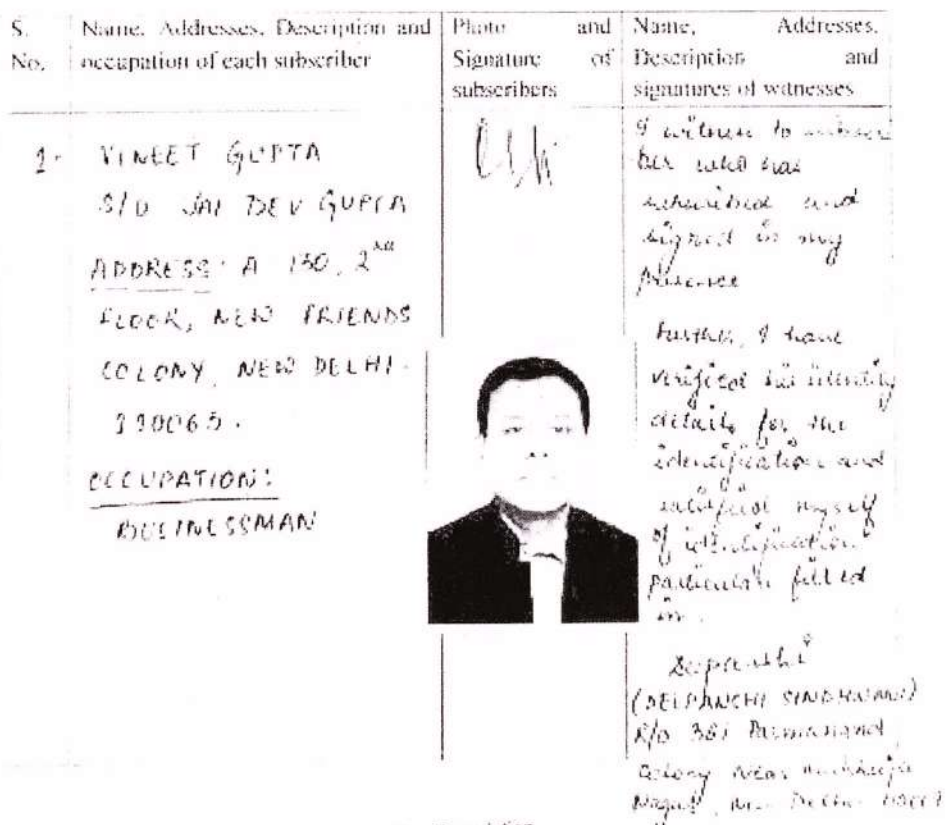 S. No.
Name, Addresses, Description and
occupation of each subscriber
Photo and
Signature of
subscribers
Name, Addresses,
Description and
signatures of witnesses
1.
VINEET GUPTA
S/O JAI DEV GUPTA
ADDRESS: A 130, 2nd
FLOOR, NEW FRIENDS
COLONY, NEW DELHI-
110065.
OCCUPATION:
BUSINESSMAN
I witness to
who has
subscribed and
signed in my
presence
Further, I have
verified his identity
details for the
identification and
satisfied myself
of identification
particulars filled
in.
Deepanshi
(DEEPANSHI SINDHWANI)
R/o 381 Parmanand
Colony Near
Nagar, New Delhi